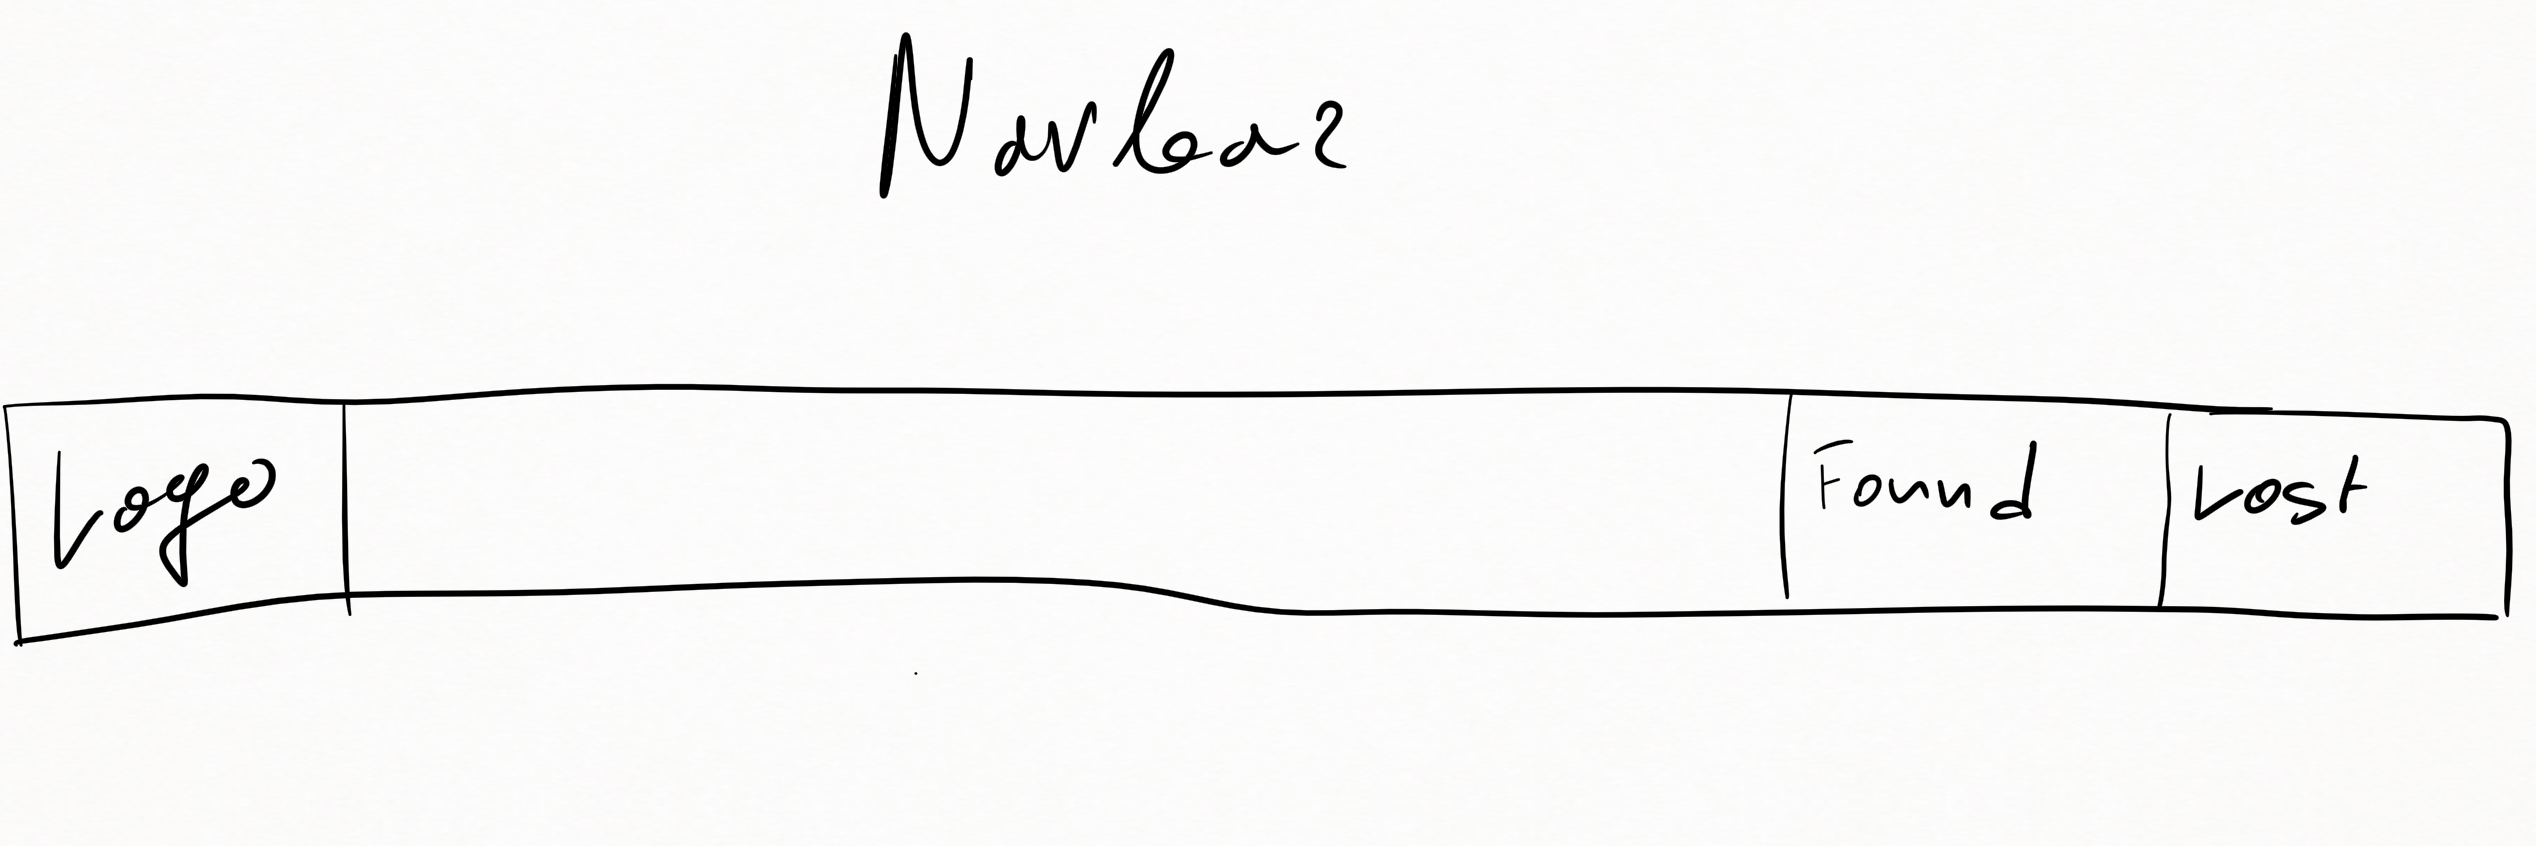 Navbar
Logo
Found
Lost